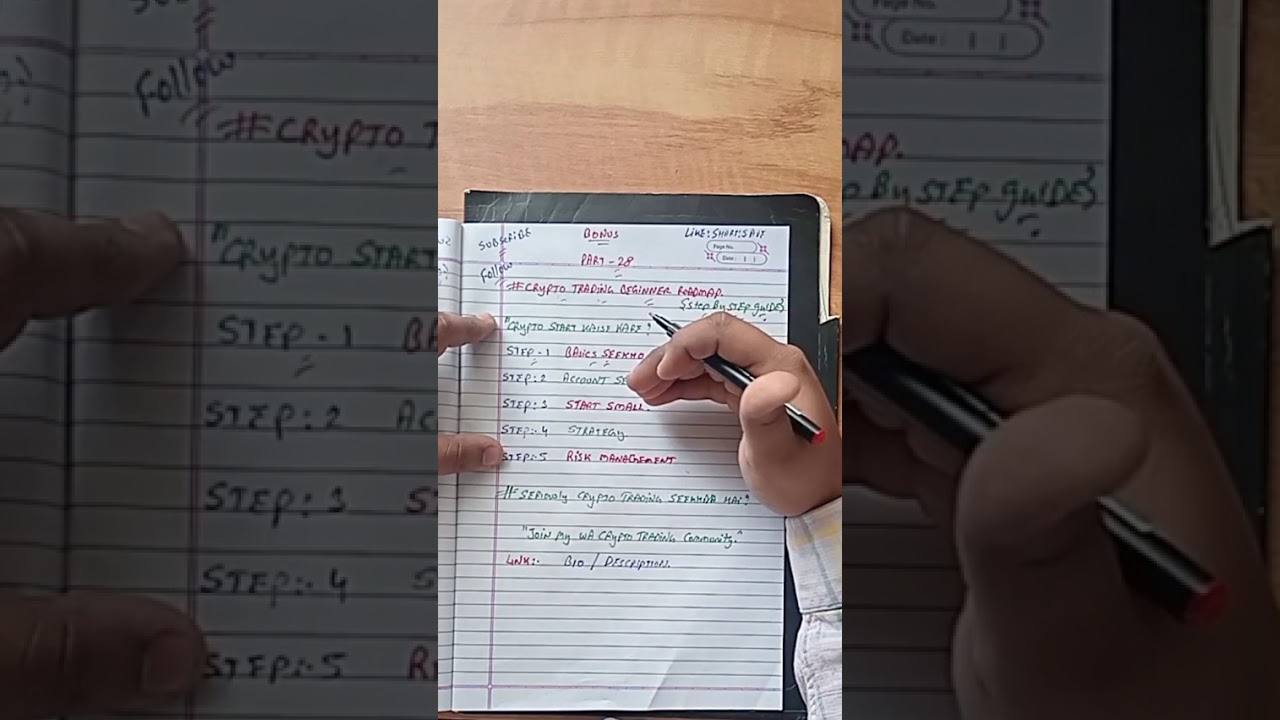 SUBSCRIBE BONUS LIKE:SHARE:SAVE
Follow PART-28
Page No.
Date :
#CRYPTO TRADING BEGINNER ROADMAP.
{STEP BY STEP GUIDE}
"CRYPTO START KAISE KARE?
STEP-1 BASICS SEEKHO
STEP:2 ACCOUNT
STEP:3 START SMALL.
STEP:-4 STRATEGY.
STEP:-5 RISK MANAGEMENT
#SERIOUSLY CRYPTO TRADING SEEKHNA HAI?
"JOIN MY WA CRYPTO TRADING COMMUNITY."
LINK:- BIO / DESCRIPTION.